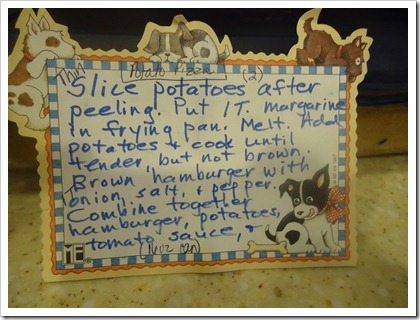 Potato Pizza (2)
Thin
Slice potatoes after
peeling. Put 1T. margarine
in frying pan. Melt. Add
potatoes & cook until
tender, but not brown.
Brown hamburger with
onion, salt, & pepper.
Combine together
hamburger, potatoes,
& tomato sauce,
(16oz can)